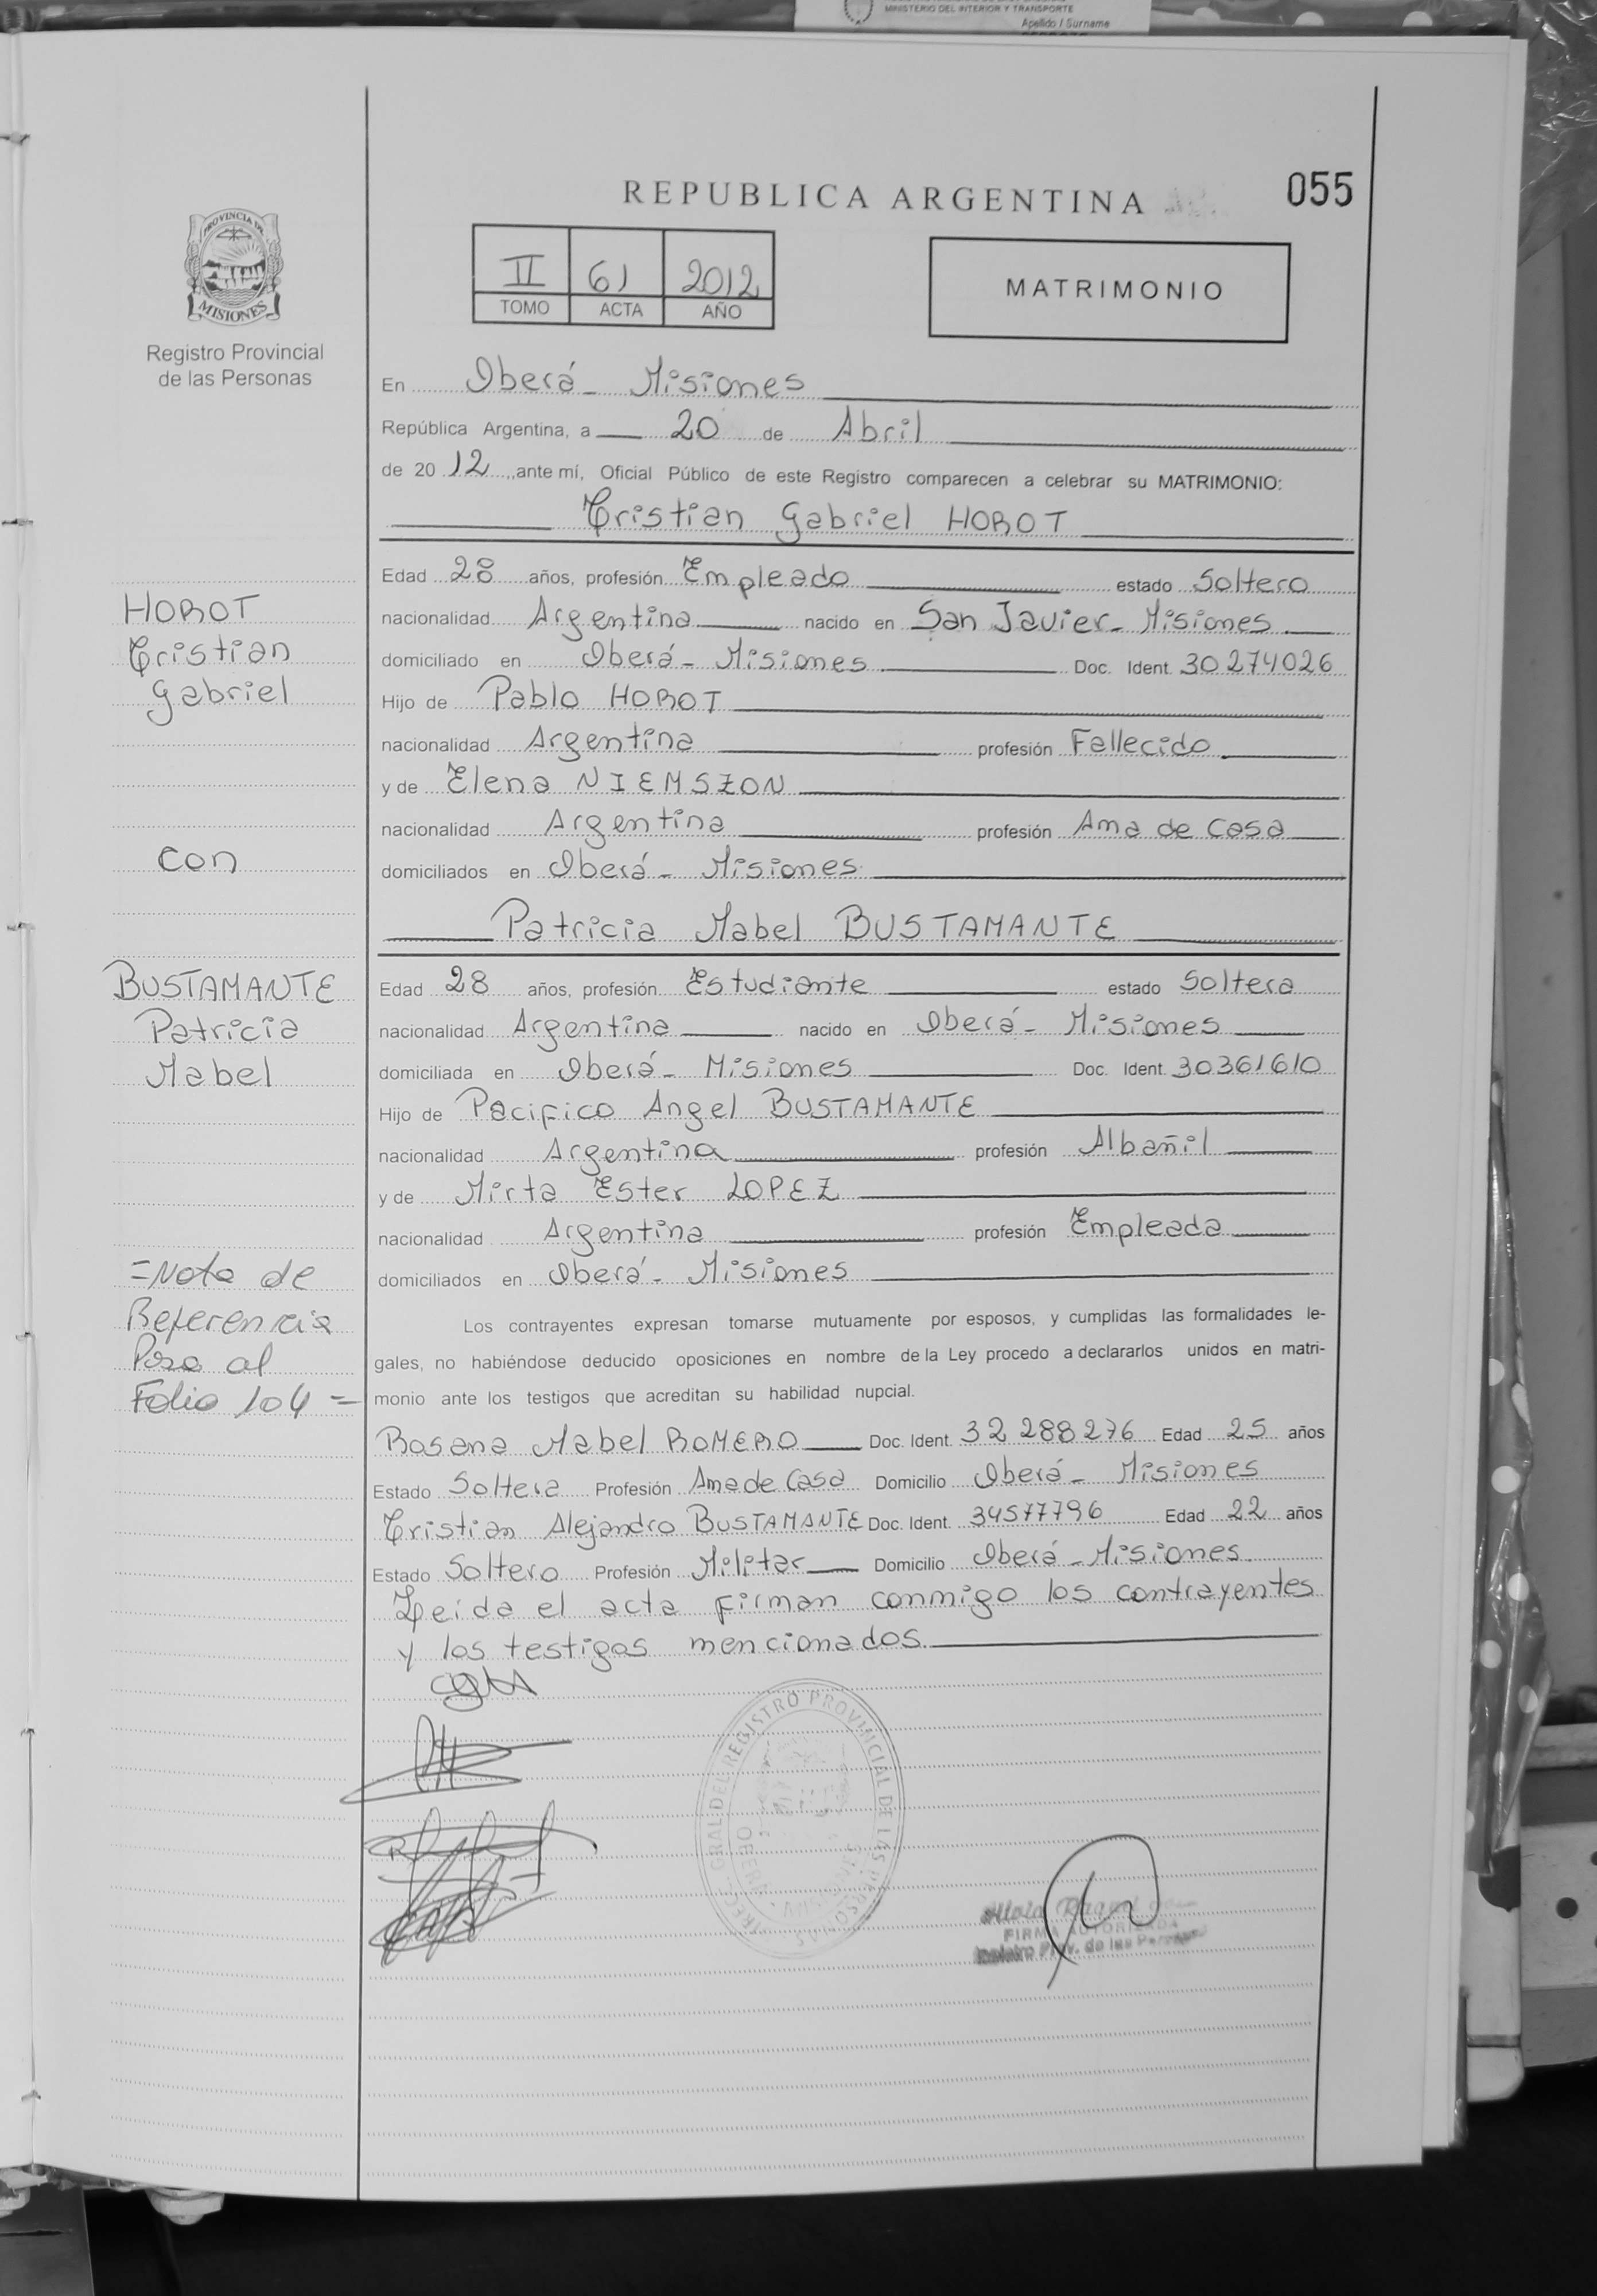 MINISTERIO DEL INTERIOR Y TRANSPORTE
Apellido / Surname
055
REPUBLICA ARGENTINA
PROVINCIA DE
MISIONES
Registro Provincial
de las Personas
II 61 2012
TOMO ACTA AÑO
MATRIMONIO
En Oberá - Misiones
República Argentina, a 20 de Abril
de 20 12, ante mí, Oficial Público de este Registro comparecen a celebrar su MATRIMONIO:
Cristian Gabriel HOROT
HOROT
Cristian
Gabriel
con
BUSTAMANTE
Patricia
Mabel
=Nota de
Referencia
Pasa al
Folio 104=
Edad 28 años, profesión Empleado estado Soltero
nacionalidad Argentina nacido en San Javier - Misiones
domiciliado en Oberá - Misiones Doc. Ident. 30274026
Hijo de Pablo HOROT
nacionalidad Argentina profesión Fallecido
y de Elena NIEMSZON
nacionalidad Argentina profesión Ama de Casa
domiciliados en Oberá - Misiones
Patricia Mabel BUSTAMANTE
Edad 28 años, profesión Estudiante estado Soltera
nacionalidad Argentina nacido en Oberá - Misiones
domiciliada en Oberá - Misiones Doc. Ident. 30361610
Hijo de Pacifico Angel BUSTAMANTE
nacionalidad Argentina profesión Albañil
y de Mirta Ester LOPEZ
nacionalidad Argentina profesión Empleada
domiciliados en Oberá - Misiones
Los contrayentes expresan tomarse mutuamente por esposos, y cumplidas las formalidades le-
gales, no habiéndose deducido oposiciones en nombre de la Ley procedo a declararlos unidos en matri-
monio ante los testigos que acreditan su habilidad nupcial.
Rosana Mabel ROMERO Doc. Ident. 32 288 276 Edad 25 años
Estado Soltera Profesión Ama de Casa Domicilio Oberá - Misiones
Cristian Alejandro BUSTAMANTE Doc. Ident. 34577796 Edad 22 años
Estado Soltero Profesión Militar Domicilio Oberá - Misiones
Leida el acta firman conmigo los contrayentes
y los testigos mencionados.
DIREC. GRAL. DEL REGISTRO PROVINCIAL DE LAS PERSONAS
MISIONES
FIRMA AUTORIZADA
Prov. de las Personas